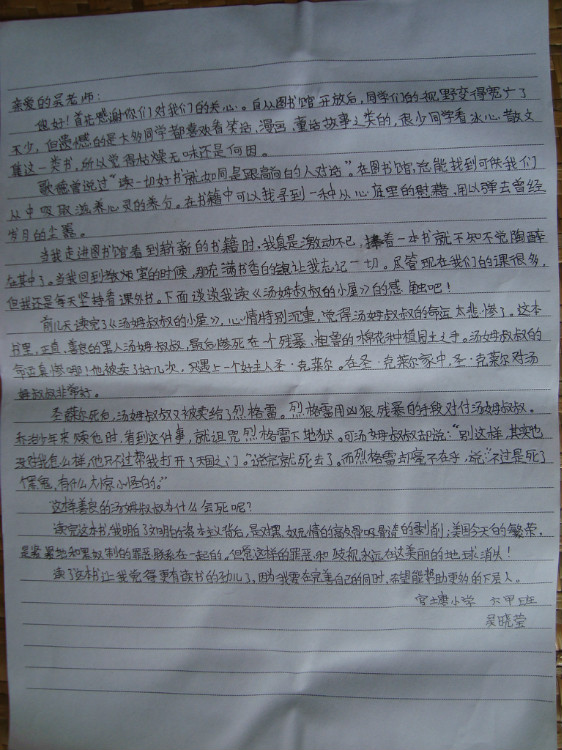 亲爱的吴老师:
您好!首先感谢你们对我们的关心。自从图书馆开放后,同学们的视野变得宽广了
不少,但遗憾的是大多同学都喜欢看笑话,漫画,童话故事之类的,很少同学看冰心散文
集这一类书,所以觉得枯燥无味还是何因。
歌德曾说过“读一切好书就如同是跟高尚的人对话”。在图书馆,总能找到可供我们
从中吸取滋养心灵的养分。在书籍中可以我寻到一种从心底里的慰藉,用以弹去曾经
岁月的尘嚣。
当我走进图书馆看到崭新的书籍时,我真是激动不已,捧着一本书就不知不觉陶醉
在其中了。当我回到教室的时候,那充满书香的让我忘记一切。尽管现在我们的课很多,
但我还是每天坚持看课外书。下面谈谈我读《汤姆叔叔的小屋》的感触吧!
前几天读完了《汤姆叔叔的小屋》,心情特别沉重,觉得汤姆叔叔的命运太悲惨了。这本
书里,正直、善良的黑人汤姆叔叔,最后惨死在一个残暴、油的棉花种植园主之手。汤姆叔叔的
命运真惨啊!他被卖了好几次,只遇上一个好主人圣·克莱尔。在圣·克莱尔家中,圣·克莱尔对汤
姆叔叔非常好。
圣·莱尔死后,汤姆叔叔又被卖给了烈格雷。烈格雷用凶狠残暴的手段对付汤姆叔叔。
乔治少年来赎他时,看到这件事,就诅咒烈格雷下地狱。可汤姆叔叔却说:“别这样,其实他
没对我怎么样,他只不过帮我打开了天国之门。”说完就死去了。而烈格雷却毫不在乎,说:“不过是死了
个黑鬼,有什么大惊小怪的。”
这样善良的汤姆叔叔为什么会死呢?
读完这本书,我明白了文明的资本主义背后,是对黑奴无情的敲骨吸髓的剥削;美国今天的繁荣,
是紧紧地和黑奴制的罪恶联系在一起的,但愿这样的罪恶和歧视永远在这美丽的地球消失!
读了这本书让我觉得更有读书的劲儿了,因为我要在完善自己的同时,希望能帮助更多的下层人。
官土小学 六甲班
吴晓莹